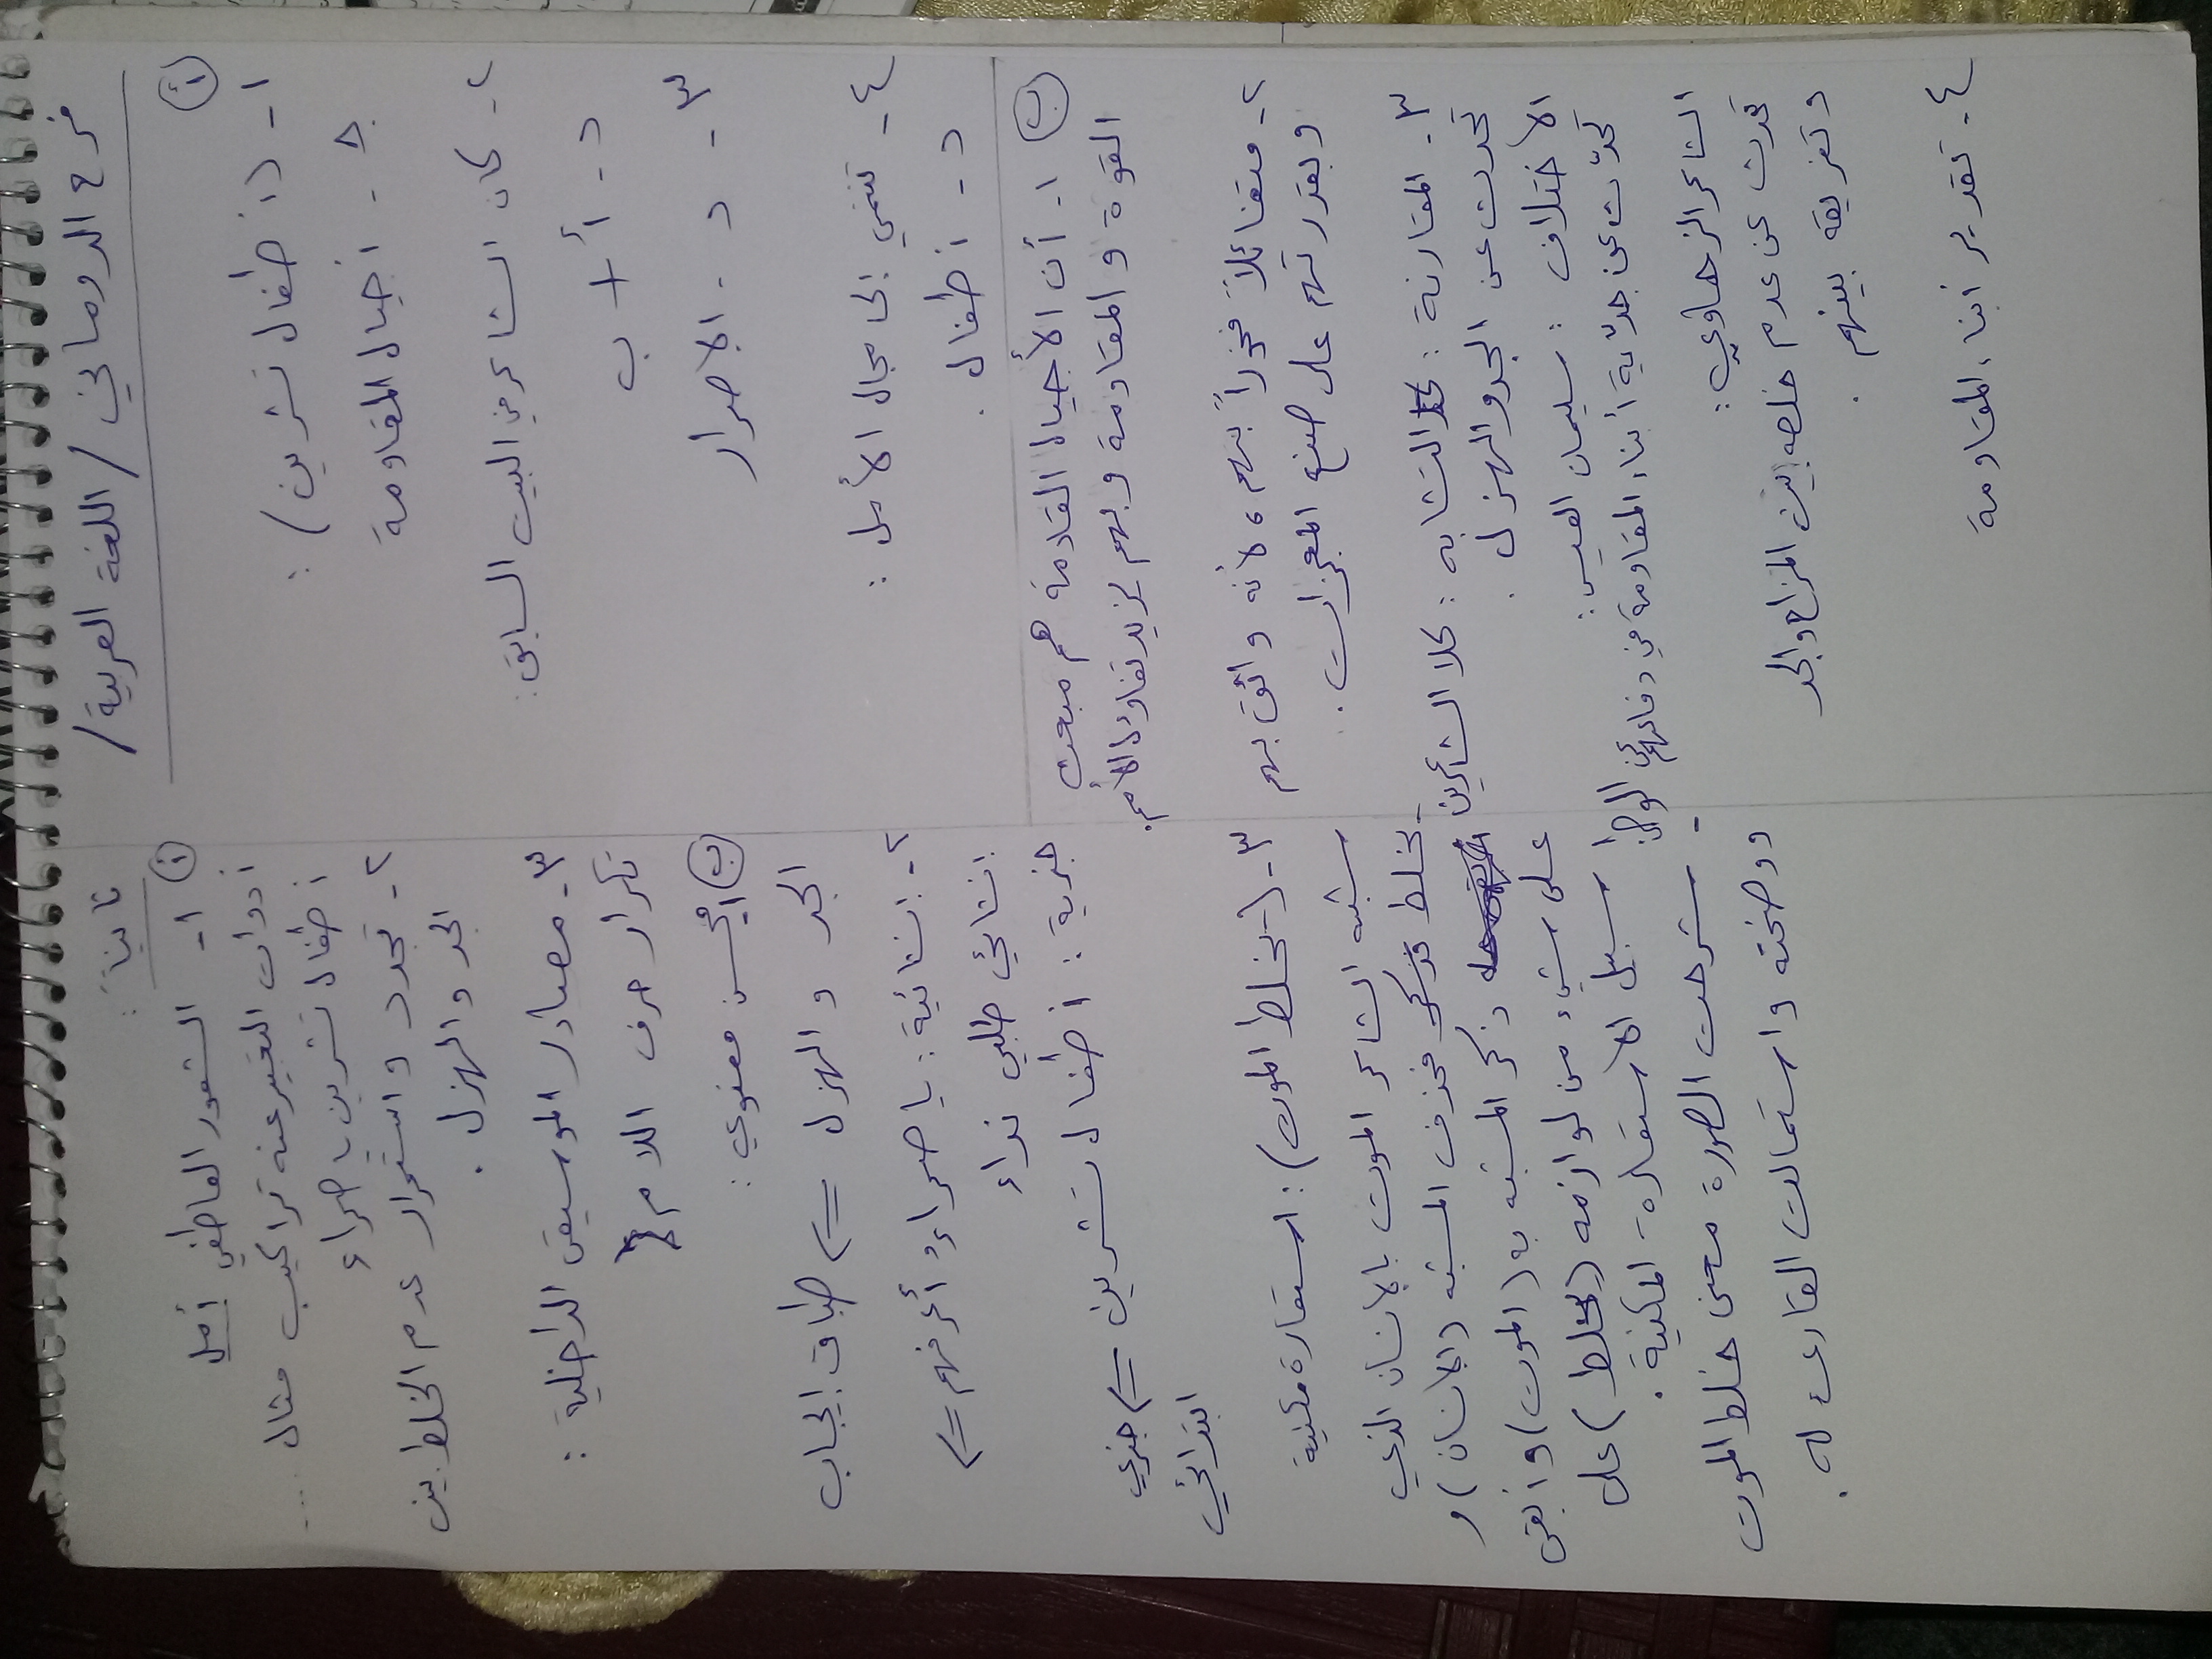 فرح الدوماني / اللغة العربية /
أ
١- (أطفال تشرين) :
ج- أجيال المقاومة
٢- كان الشاعر في البيت السابق :
د- أ + ب
٣- د- الإصرار
٤- تنتمي إلى مجال الأمل :
د- أطفال .
ب
١- أن الأجيال القادمة هم مبعث
القوة والمقاومة وبهم يزيد تفاؤل الأمم.
٢- متفائلاً فخوراً بهم ، لأنه واثق بهم
وبقدرتهم على صنع المعجزات .
٣- المقارنة : التشابه : كلا الشاعرين
تحدث عن الجد والهزل .
الاختلاف : سليمان العيسى :
تحدّث عن جدّية أبناء المقاومة في دفاعهم عن الوطن
الشاعر الزهاوي :
تحدث عن عدم خلصه بين المزاح والجد
وتفريقه بينهم .
٤- تقدير أبناء المقاومة
ثانياً :
أ
١- الشعور العاطفي أمل
أدوات التعبير عنه تراكيب مثال ...
أطفال تشرين يا صحراء
٢- تجدد واستمرار عدم الخلط بين
الجد والهزل .
٣- مصادر الموسيقى الداخلية :
تكرار حرف اللام
ب
١- محسن معنوي :
الجد والهزل => طباق إيجاب
٢- إنشائية : يا صحراء أعرفهم =>
إنشائي طلبي نداء
خبرية : أطفال تشرين => خبري
ابتدائي
٣- (يخلط الموت) : استعارة مكنية
شبه الشاعر الموت بالإنسان الذي
يخلط فحذف المشبه (الإنسان) و
ذكر المشبه به (الموت) وأبقى
على شيء من لوازمه (يخلط) على
سبيل الاستعارة المكنية .
- شرحت الصورة معنى خلط الموت
ووضحته واستمالت القارئ له .